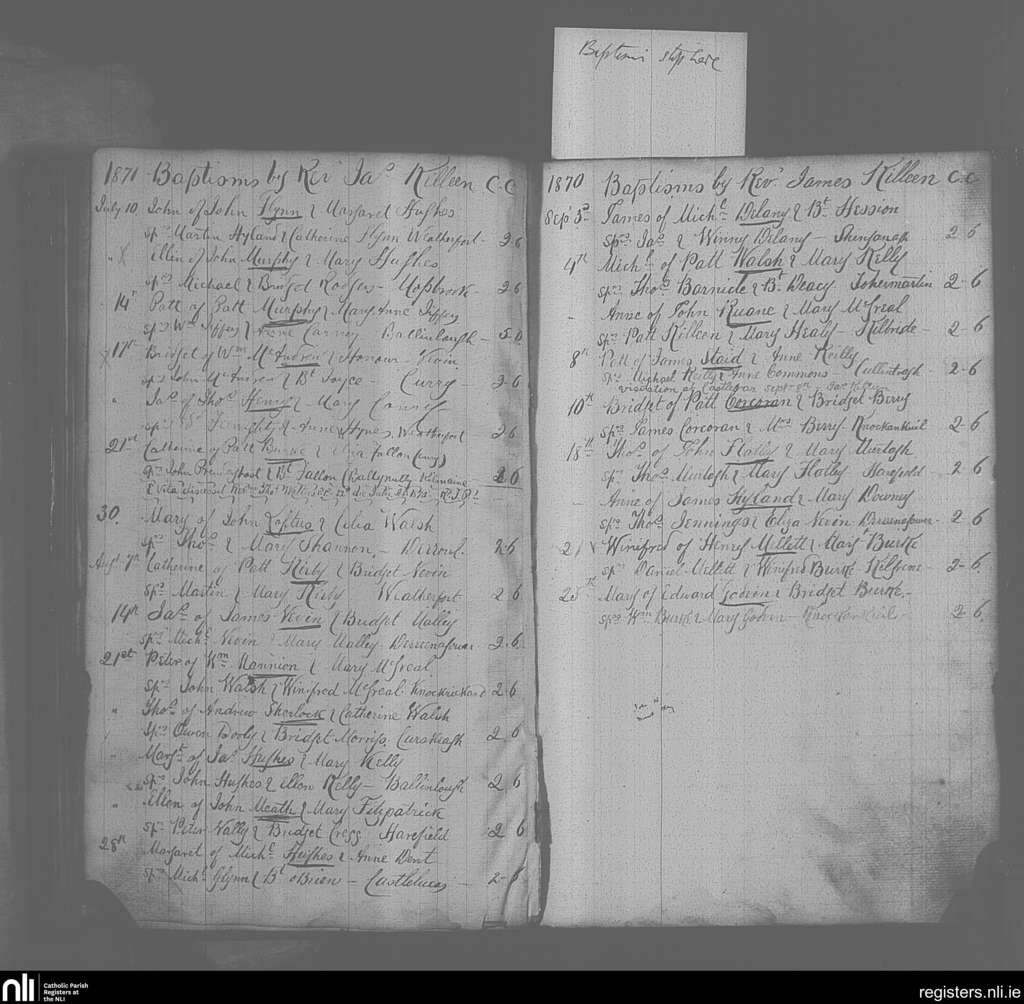 Baptisms stop here
1871 Baptisms by Revd Jas Killeen C.C.
July 10 John of John Flynn & Margaret Hughes
sprs Martin Hyland & Catherine Flynn Weatherfort - 2-6
" Ellen of John Murphy & Mary Hughes
sprs Michael & Bridget Rodgers - Mossbrook - 2-6
14th Patt of Patt Murphy & Mary Anne
sprs Wm & Anne Ballinlough - 5-0
17th Bridget of Wm McAndrew & Honour
sprs John McAndrew & Bt Joyce - Curry 2-6
" Jas of Thos Henry & Mary
sprs & Anne Hynes, Weatherfort 2-6
21st Catherine of Patt Burke & Eliza Fallon
sprs John & Bt Fallon (Ballynully Kilmaine 2-6
30. Mary of John Loftus & Celia Walsh
sprs Thos & Mary Shannon. - 2-6
Augt 7th Catherine of Patt Kirby & Bridget Nevin
sprs Martin & Mary Kirby Weatherfort 2 6
14th Jas of James Nevin & Bridget Malley
sprs Michl Nevin & Mary Malley Derreenafower 2-6
21st Peter of Wm Mannion & Mary McGreal
sprs John Walsh & Winifred McGreal Knockrickard 2-6
" Thos of Andrew Sherlock & Catherine Walsh
sprs Owen & Bridget Morriss. 2 6
" Margt of Jas Hughes & Mary Kelly
sprs John Hughes & Ellen Kelly - Ballinlough 2 6
" Ellen of John Meath & Mary Fitzpatrick
sprs Peter Nally & Bridget Cregg Harefield 2 6
28th Margaret of Michl Hughes & Anne Dent
sprs Michl Glynn & Bt OBrien - Castlelucas - 2-6
1870 Baptisms by Revd James Killeen C.C.
Sept 3rd James of Michl Delany & Bt Hession
sprs Jas & Winny Delany - 2-6
4th Michl of Patt Walsh & Mary Kelly
sprs Thos Barnicle & Bt Deacy Tobermartin 2-6
" Anne of John Ruane & Mary McGreal
sprs Patt Killeen & Mary Healy - Kilbride - 2-6
8th Patt of James Staid & Anne Reilly
sprs Michael Reilly & Anne Commons - 2-6
visitation at Castlebar Sept 9th
10th Bridget of Patt Corcoran & Bridget Berry
sprs James Corcoran & Mrs Berry - Knockankuil 2-6
18th Thos of John Flatley & Mary Murtagh
sprs Thos Murtagh & Mary Flatley Harefield 2-6
- Anne of James Hyland & Mary Downey
sprs Thos Jennings & Eliza Nevin Derreenafower - 2 6
21 Winifred of Henry Mellett & Mary Burke
sprs Daniel Mellett & Winifred Burke - 2-6
25th Mary of Edward Godwin & Bridget Burke. -
sprs Wm Burke & Mary Godwin - Knockankuil 2 6.
nli Catholic Parish
Registers at
the NLI
registers.nli.ie